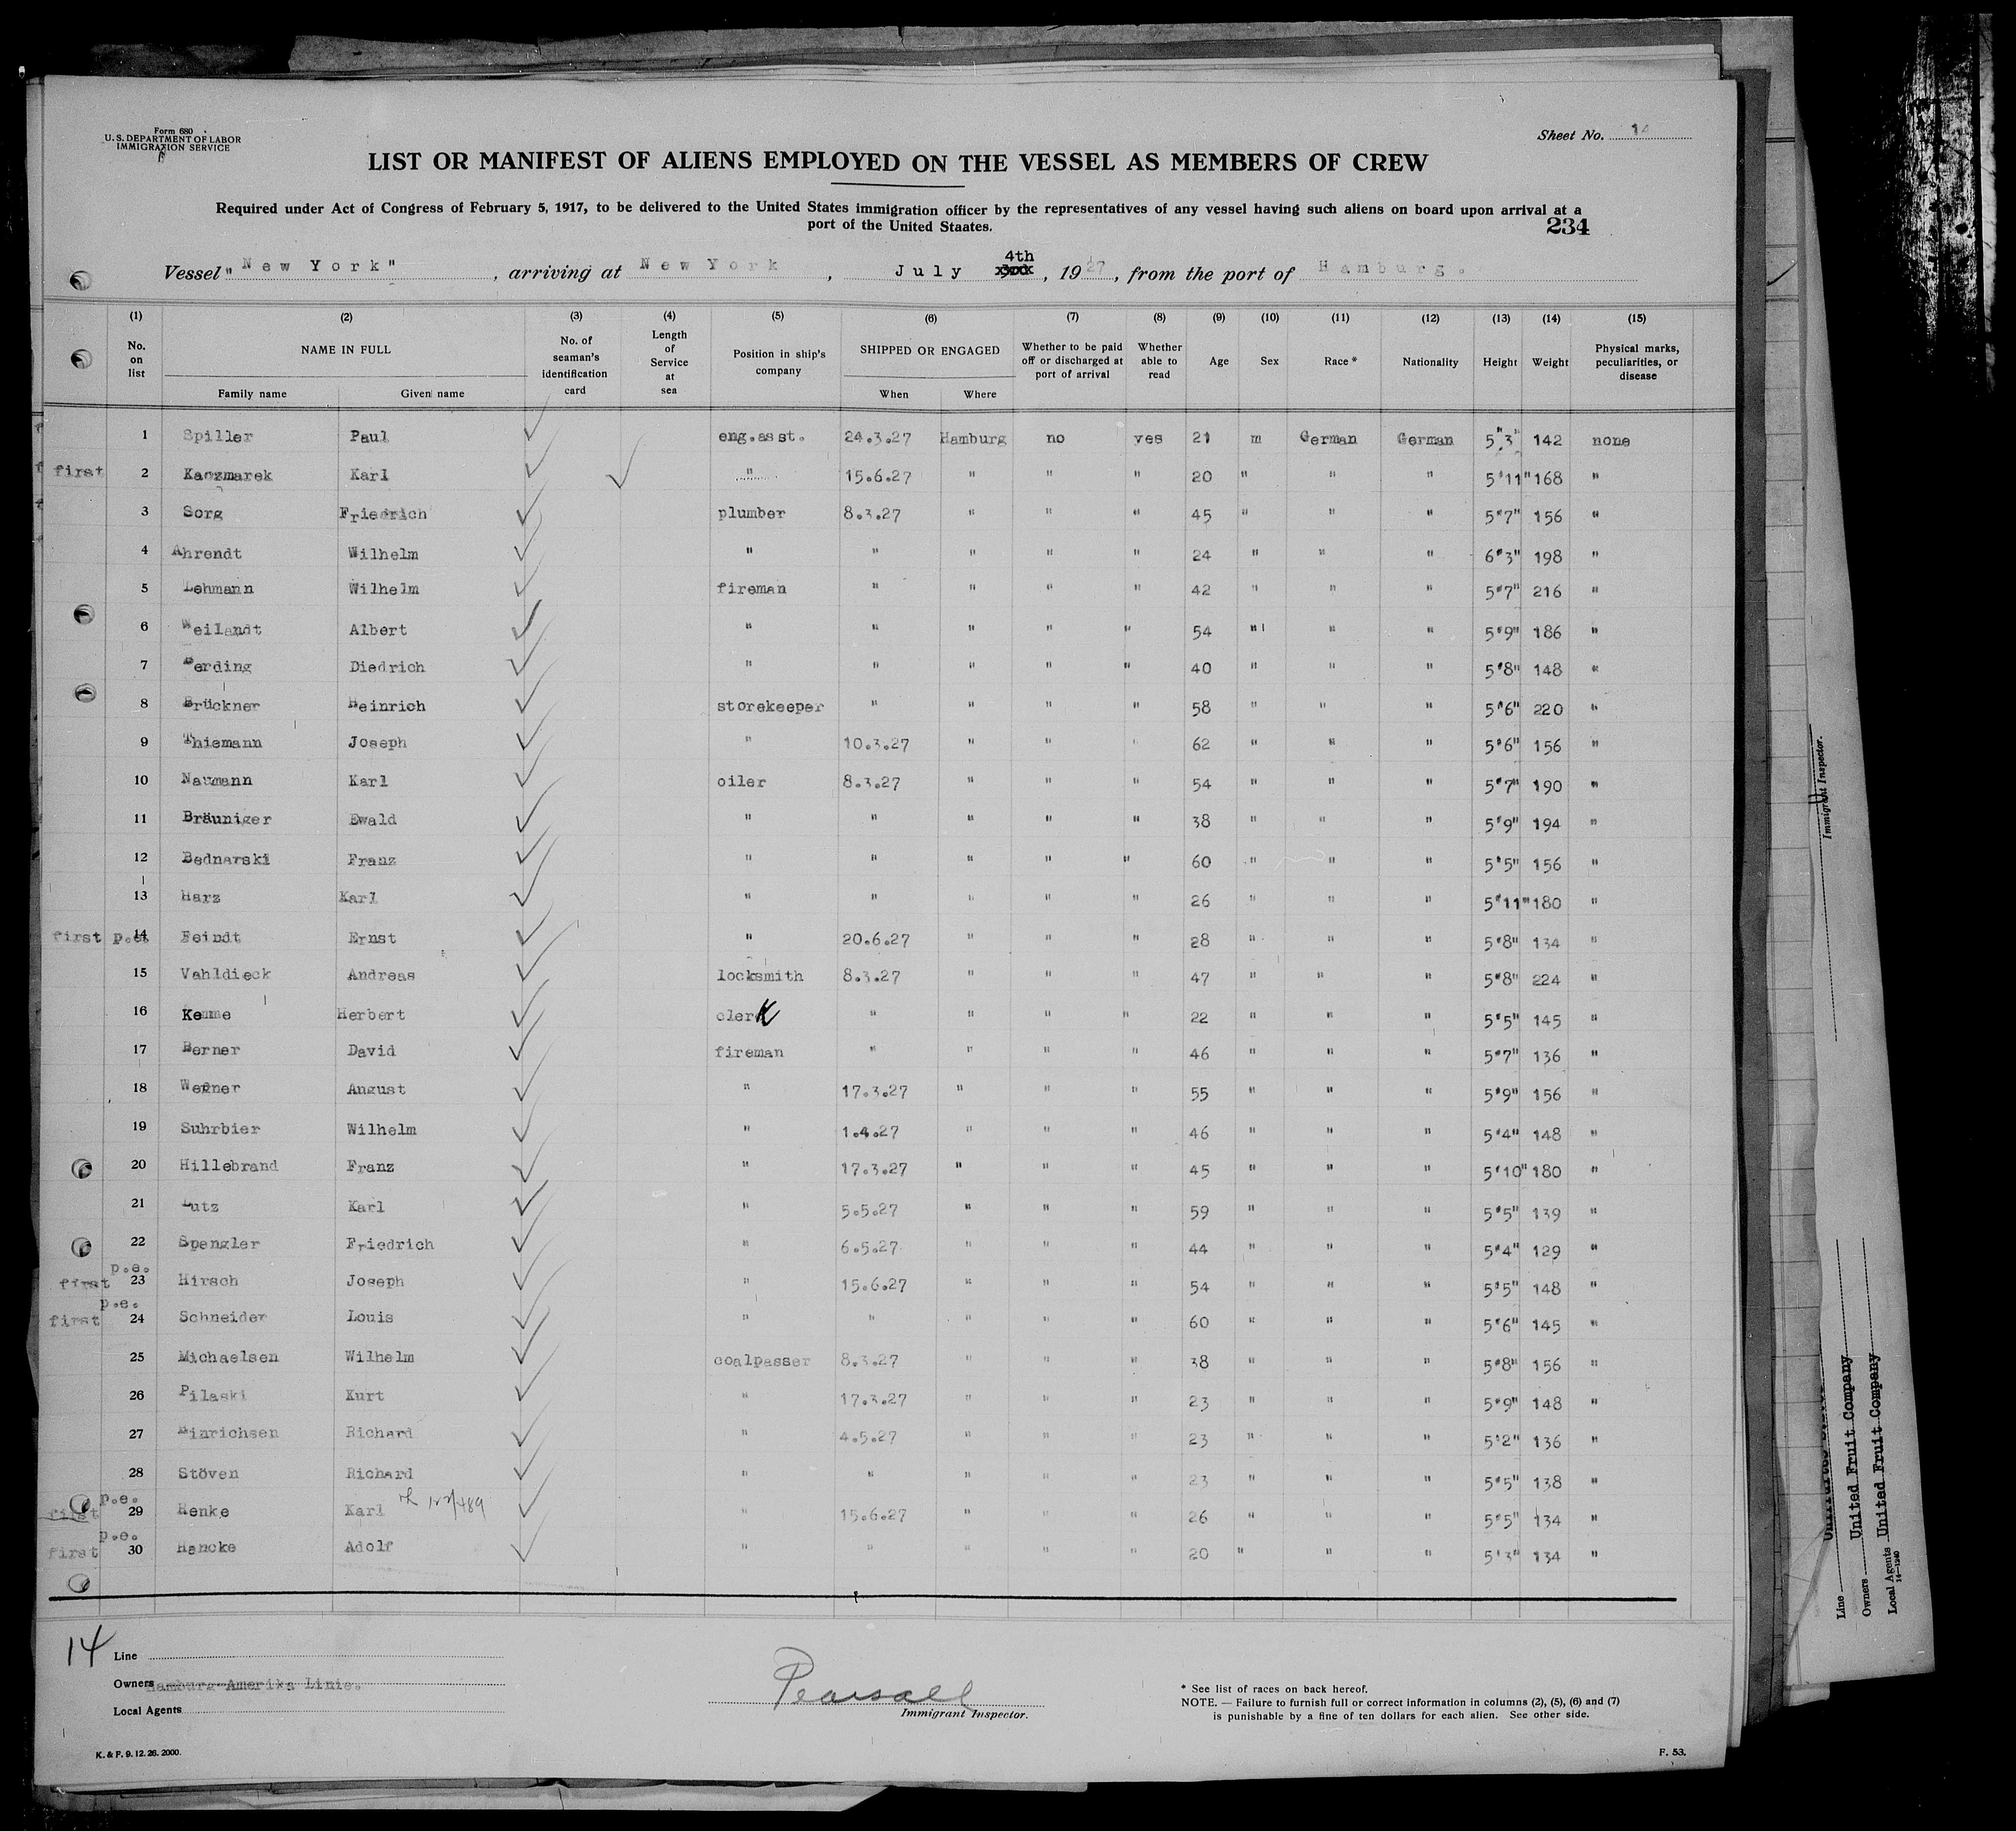 Form 680
U. S. DEPARTMENT OF LABOR
IMMIGRATION SERVICE
Sheet No. 14
LIST OR MANIFEST OF ALIENS EMPLOYED ON THE VESSEL AS MEMBERS OF CREW
Required under Act of Congress of February 5, 1917, to be delivered to the United States immigration officer by the representatives of any vessel having such aliens on board upon arrival at a
port of the United Staates.
234
Vessel "New York", arriving at New York, July 4th, 1927, from the port of Hamburg.
(1) (2) (3) (4) (5) (6) (7) (8) (9) (10) (11) (12) (13) (14) (15)
No. on list NAME IN FULL No. of seaman's identification card Length of Service at sea Position in ship's company SHIPPED OR ENGAGED Whether to be paid off or discharged at port of arrival Whether able to read Age Sex Race * Nationality Height Weight Physical marks, peculiarities, or disease
Family name Given name When Where
1 Spiller Paul eng.asst. 24.3.27 Hamburg no yes 21 m German German 5"3" 142 none
first 2 Kaczmarek Karl " 15.6.27 " " " 20 " " " 5'11" 168 "
3 Sorg Friedrich plumber 8.3.27 " " " 45 " " " 5'7" 156 "
4 Ahrendt Wilhelm " " " " " 24 " " " 6'3" 198 "
5 Lehmann Wilhelm fireman " " " " 42 " " " 5'7" 216 "
6 Weilandt Albert " " " " " 54 " " " 5'9" 186 "
7 erding Diedrich " " " " " 40 " " " 5'8" 148 "
8 Brückner Heinrich storekeeper " " " " 58 " " " 5'6" 220 "
9 Thiemann Joseph " 10.3.27 " " " 62 " " " 5'6" 156 "
10 Naumann Karl oiler 8.3.27 " " " 54 " " " 5'7" 190 "
11 Bräuniger Ewald " " " " " 38 " " " 5'9" 194 "
12 Bednarski Franz " " " " " 60 " " " 5'5" 156 "
13 Harz Karl " " " " " 26 " " " 5'11" 180 "
first p.e. 14 Feindt Ernst " 20.6.27 " " " 28 " " " 5'8" 134 "
15 Vahldieck Andreas locksmith 8.3.27 " " " 47 " " " 5'8" 224 "
16 Kemme Herbert clerK " " " " 22 " " " 5'5" 145 "
17 Berner David fireman " " " " 46 " " " 5'7" 136 "
18 Weßner August " 17.3.27 " " " 55 " " " 5'9" 156 "
19 Suhrbier Wilhelm " 1.4.27 " " " 46 " " " 5'4" 148 "
20 Hillebrand Franz " 17.3.27 " " " 45 " " " 5'10" 180 "
21 Lutz Karl " 5.5.27 " " " 59 " " " 5'5" 139 "
22 Spengler Friedrich " 6.5.27 " " " 44 " " " 5'4" 129 "
first p.e. 23 Hirsch Joseph " 15.6.27 " " " 54 " " " 5'5" 148 "
first p.e. 24 Schneider Louis " " " " " 60 " " " 5'6" 145 "
25 Michaelsen Wilhelm coalpasser 8.3.27 " " " 38 " " " 5'8" 156 "
26 Pilaski Kurt " 17.3.27 " " " 23 " " " 5'9" 148 "
27 Hinrichsen Richard " 4.5.27 " " " 23 " " " 5'2" 136 "
28 Stöven Richard " " " " " 23 " " " 5'5" 138 "
first p.e. 29 Henke Karl " 15.6.27 " " " 26 " " " 5'5" 134 "
first p.e. 30 Hencke Adolf " " " " " 20 " " " 5'3" 134 "
14
Line
Owners Hamburg-Amerika Linie.
Local Agents
Pearsall
Immigrant Inspector.
* See list of races on back hereof.
NOTE. — Failure to furnish full or correct information in columns (2), (5), (6) and (7)
is punishable by a fine of ten dollars for each alien. See other side.
K. & P. 9. 12. 26. 2000.
F. 53.
Immigrant Inspector.
Line
Owners United Fruit Company
Local Agents United Fruit Company
14—1240